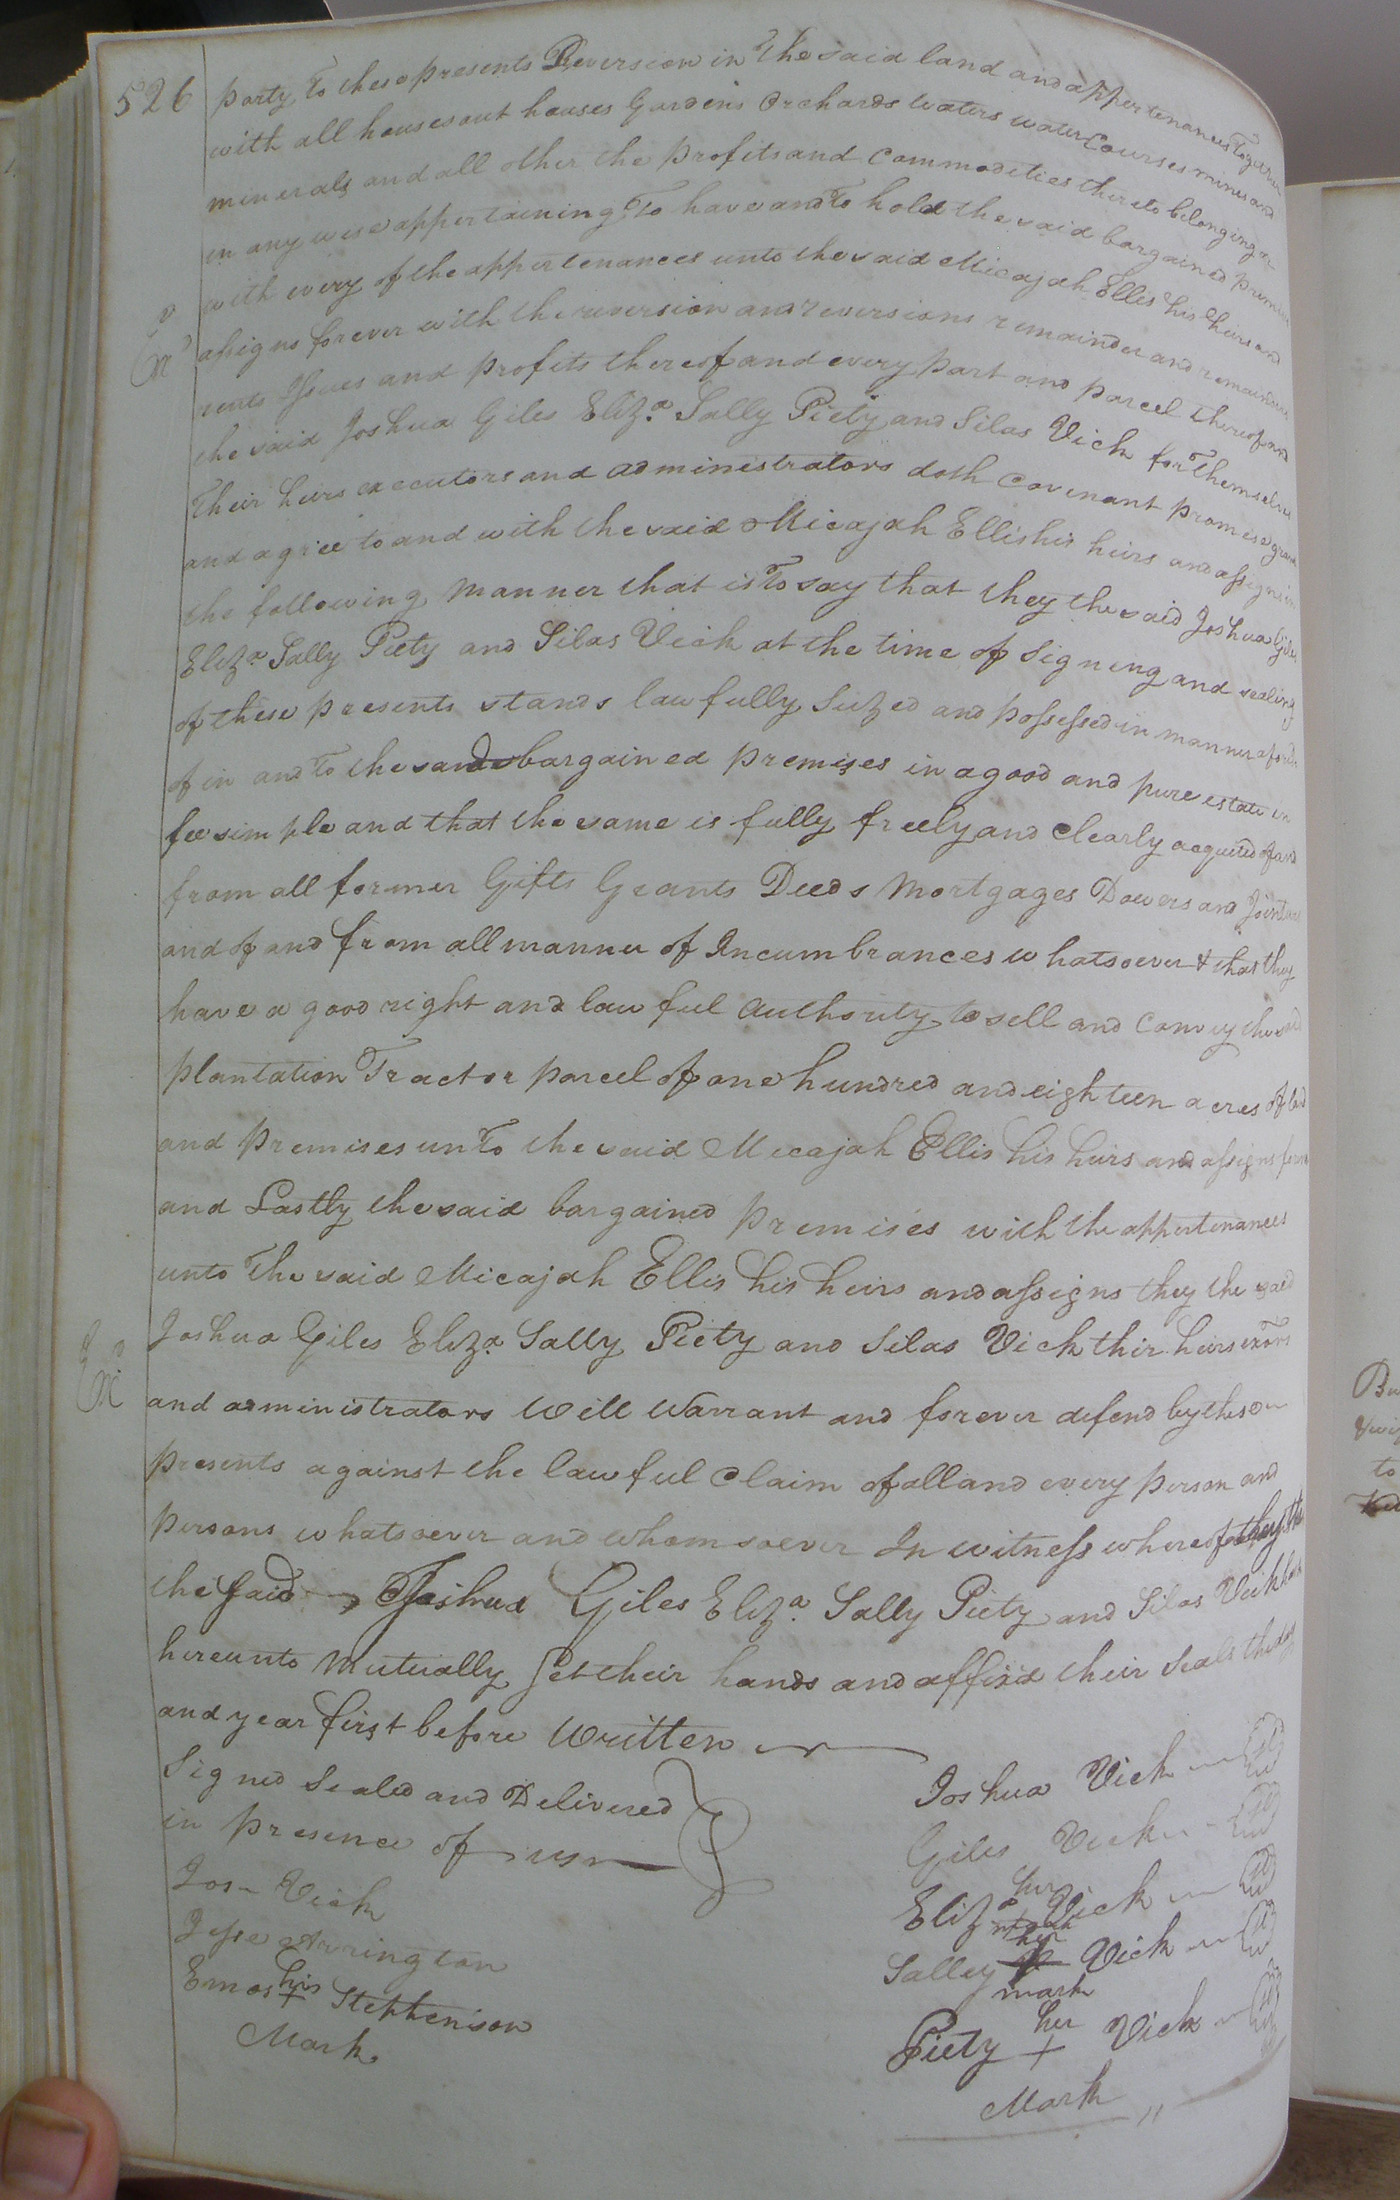 526
party to these presents Reversion in the said land and appertenances Together
with all houses out houses Gardens Orchards waters water Courses mines and
minerals and all other the profits and Commodeties thereto belonging or
in any wise appertaining To have and To hold the said bargained premises
with every of the appertenances unto the said Micajah Ellis his heirs and
assigns forever with the reversion and reversions remainder and remainders
rents Issues and profits thereof and every part and parcel thereof and
the said Joshua Giles Eliza. Sally Piety and Silas Vick for Themselves
Their heirs executors and administrators doth Covenant promise grant
and agree to and with the said Micajah Ellis his heirs and assigns in
the following manner that is To say that they the said Joshua Giles
Eliza Sally Piety and Silas Vick at the time of signing and sealing
of these presents stands lawfully Seized and possessed in manner aforesd
of in and To the said bargained premises in a good and pure estate in
fee simple and that the same is fully freely and Clearly acquited of and
from all former Gifts Grants Deeds Mortgages Dowers and Jointures
and of and from all manner of Incumbrances whatsoever & that they
have a good right and lawful Authority to sell and Convey the said
plantation Tract or parcel of one hundred and eighteen acres of land
and premises unTo the said Micajah Ellis his heirs and assigns forever
and Lastly the said bargained premises with the appertenances
unto The said Micajah Ellis his heirs and assigns they the said
Joshua Giles Eliza Sally Piety and Silas Vick thir heirs exors
and administrators Will Warrant and forever defend by these
presents against the lawful Claim of all and every person and
persons whatsoever and whomsoever In witness whereof they the
the said Joshua Giles Eliza. Sally Piety and Silas Vick hath
hereunto Mutually Set their hands and affix'd their Seals the day
and year first before Written
Signed Sealed and Delivered
in presence of us
Jos Vick
Jesse Arrington
Emos his + Stephenson
Mark
Joshua Vick
Giles Vick
her
Eliza Vick
mark
her
Salley Vick
mark
her
Piety + Vick
Mark